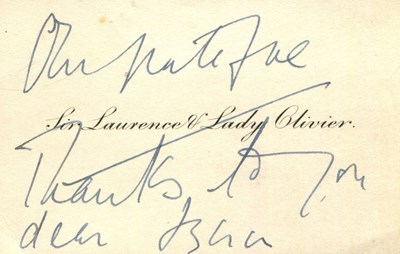 Our grateful
Sir Laurence & Lady Olivier.
Thanks to you
dear